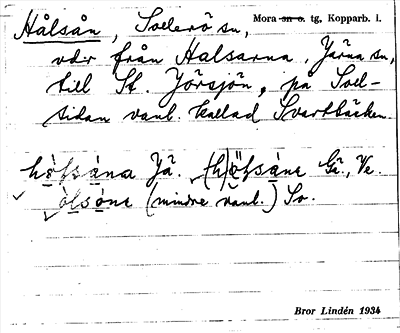 Hålsån, Sollerö sn, Mora sn o. tg, Kopparb. l.
vdr från Halsarna, Järna sn,
till St. Jörsjön, på Soll-
sidan vanl. kallad Svartbäcken.
Jä. Gä., Ve.
(mindre vanl.) So.
Bror Lindén 1934